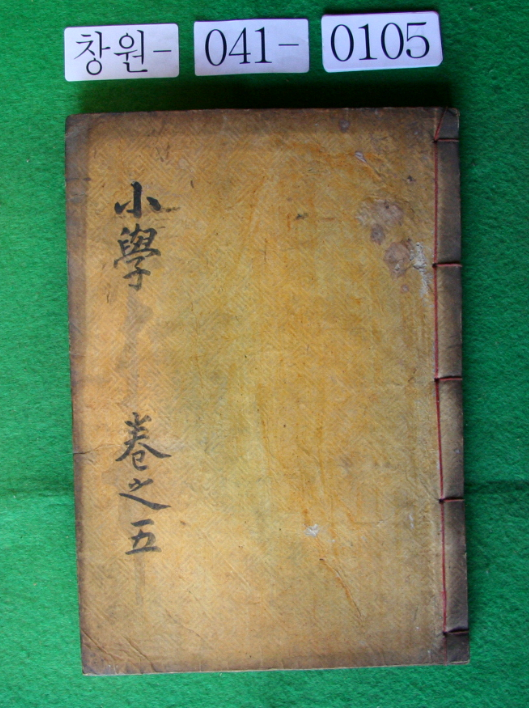 창원- 041- 0105
小學
卷之五